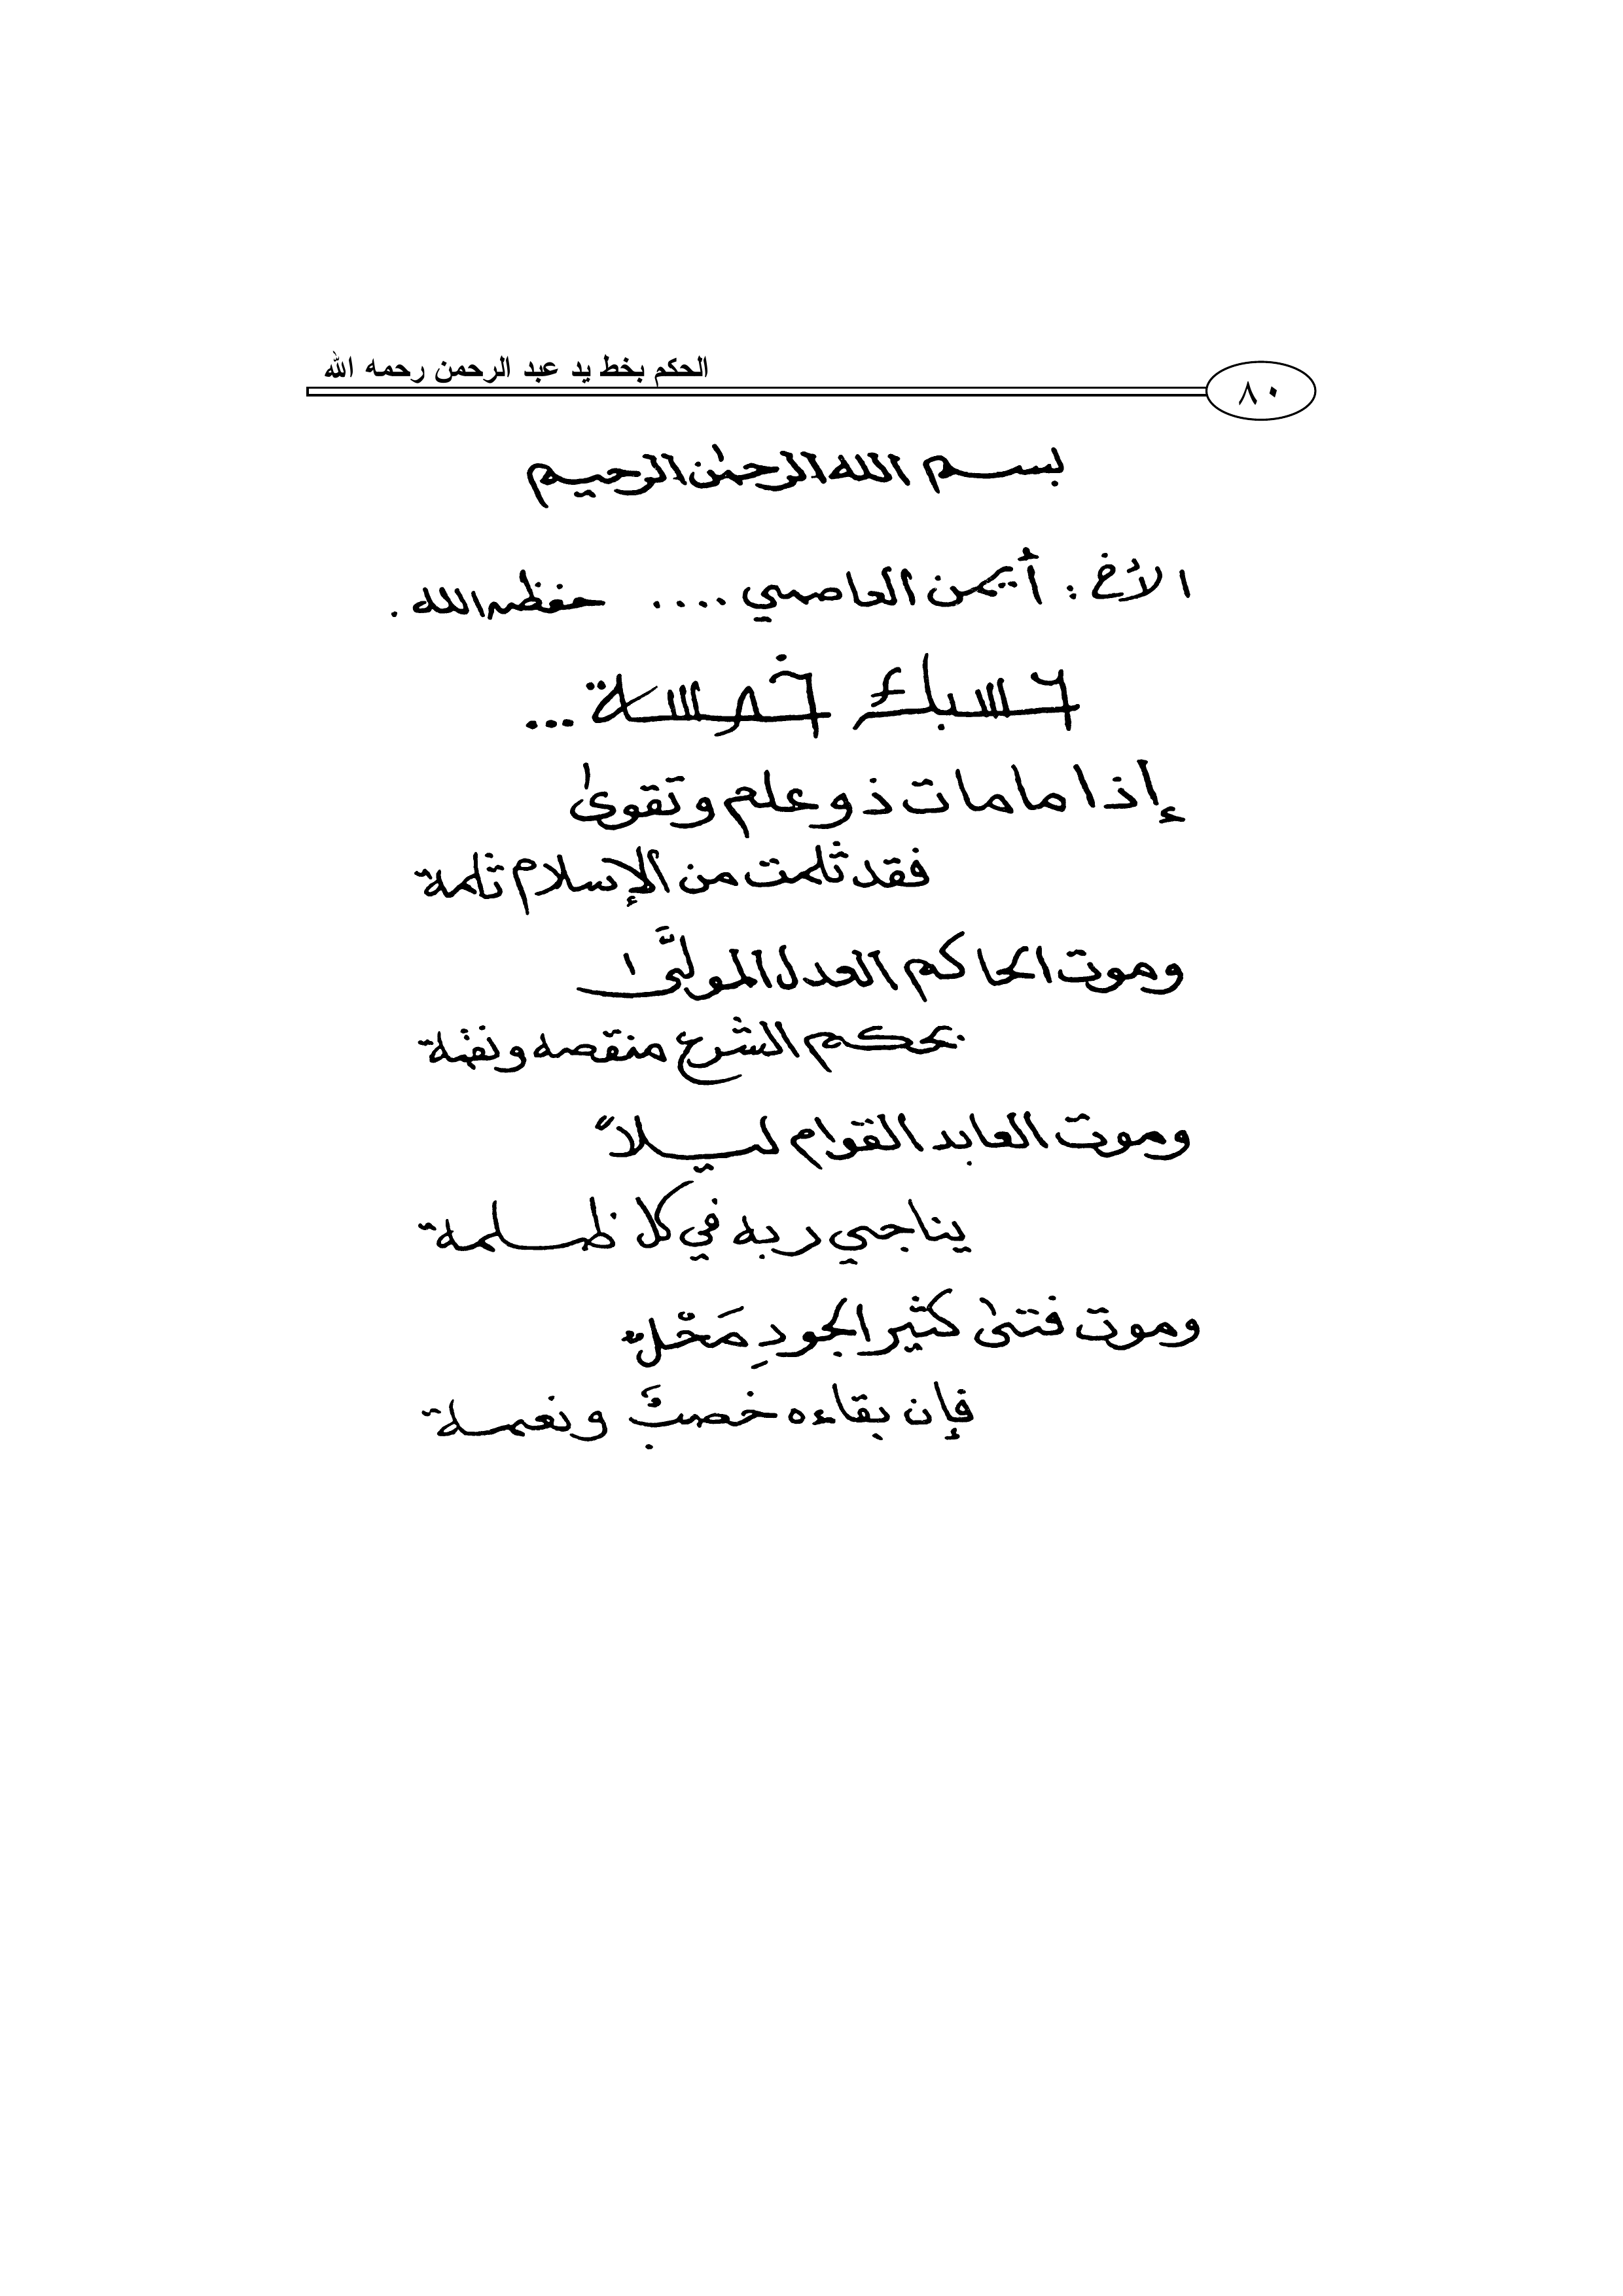 الحكم بخط يد عبد الرحمن رحمه الله
٨٠
بسم الله الرحمن الرحيم
الأخ : أيمن العاصمي .... حفظه الله .
حسبك خمسة ...
إذا ما مات ذو علم وتقوىٰ
فقد ثلمت من الإسلام ثلمة
وموت الحاكم العدل المولَّىٰ
بحكم الشرع منقصه ونقمة
وموت العابد القوام ليلاً
يناجي ربه في كل ظلمة
وموت فتىٰ كثير الجودِ مَحْلٌ
فإن بقاءه خصبٌ ونعمة